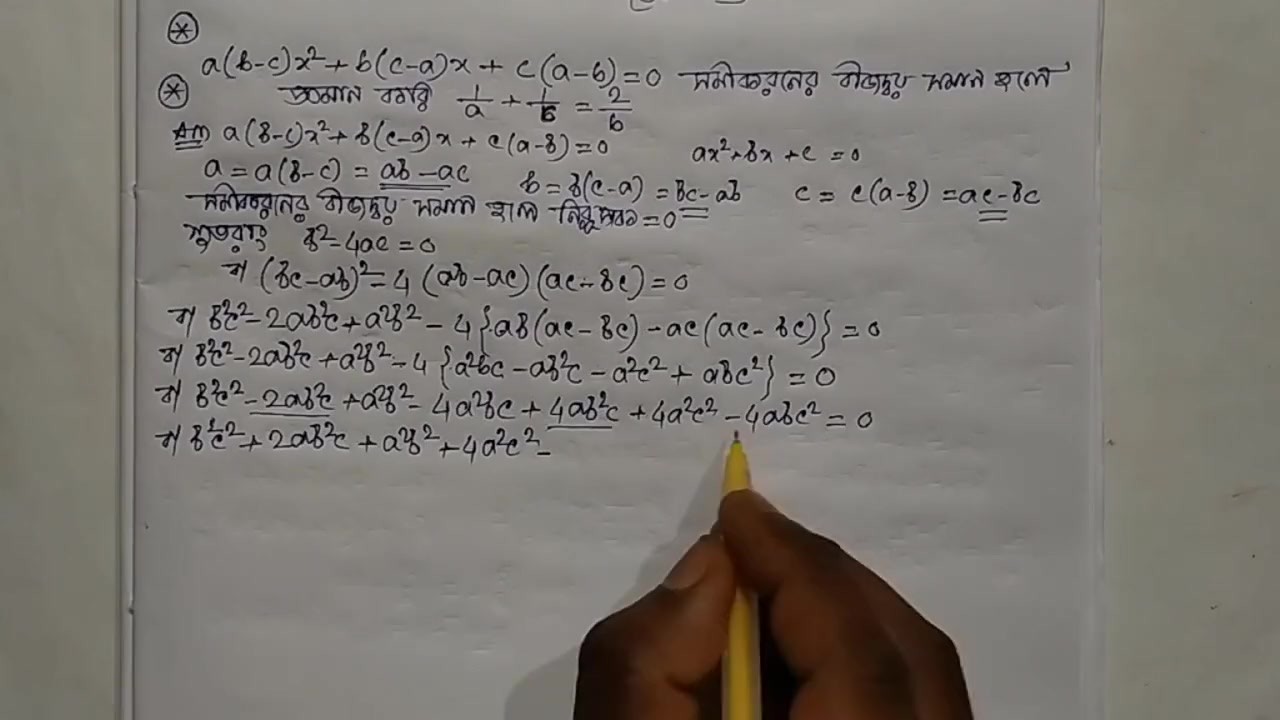 * a(b-c)x² + b(c-a)x + c(a-b) = 0 সমীকরনের বীজদ্বয় সমান হলে
* প্রমান করি 1/a + 1/b = 2/b
Ans a(b-c)x² + b(c-a)x + c(a-b) = 0 ax² + bx + c = 0
a = a(b-c) = ab-ac b = b(c-a) = bc-ab c = c(a-b) = ac-bc
সমীকরনের বীজদ্বয় সমান হলে নিরুপক = 0
সুতরাং b² - 4ac = 0
বা (bc-ab)² - 4 (ab-ac) (ac-bc) = 0
বা b²c² - 2ab²c + a²b² - 4 {ab(ac-bc) - ac(ac-bc)} = 0
বা b²c² - 2ab²c + a²b² - 4 {a²bc - ab²c - a²c² + abc²} = 0
বা b²c² - 2ab²c + a²b² - 4a²bc + 4ab²c + 4a²c² - 4abc² = 0
বা b²c² + 2ab²c + a²b² + 4a²c² -